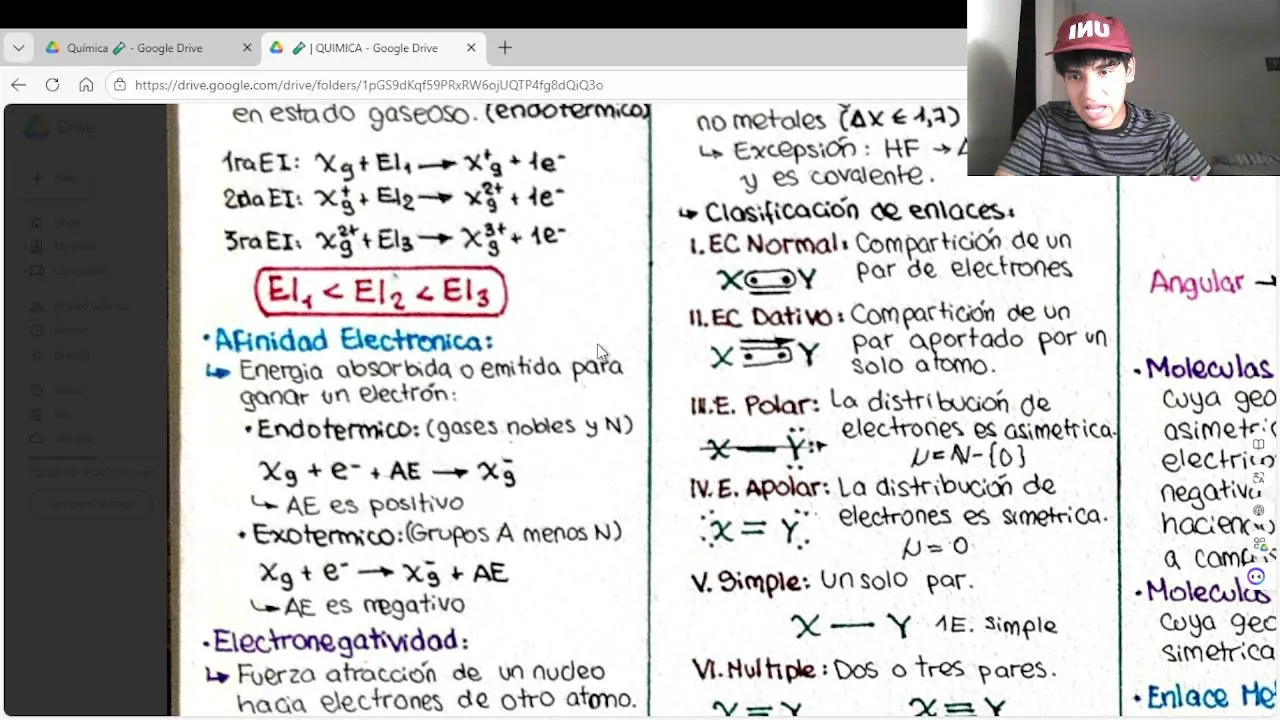 Química 🧪 - Google Drive
🧪 | QUIMICA - Google Drive
https://drive.google.com/drive/folders/1pGS9dKqf59PRxRW6ojUQTP4fg8dQiQ3o
UNI
Drive
New
en estado gaseoso. (endotermico)
1ra EI: Xg + EI₁ → X⁺g + 1e⁻
2da EI: X⁺g + EI₂ → X²⁺g + 1e⁻
3ra EI: X²⁺g + EI₃ → X³⁺g + 1e⁻
EI₁ < EI₂ < EI₃
• Afinidad Electronica:
↳ Energia absorbida o emitida para
ganar un electrón:
• Endotermico: (gases nobles y N)
Xg + e⁻ + AE → X⁻g
↳ AE es positivo
• Exotermico: (Grupos A menos N)
Xg + e⁻ → X⁻g + AE
↳ AE es negativo
• Electronegatividad:
↳ Fuerza atracción de un nucleo
hacia electrones de otro atomo.
no metales (ΔX < 1,7)
↳ Excepsión: HF →
y es covalente.
↳ Clasificación de enlaces:
I. EC Normal: Compartición de un
par de electrones
X Y
II. EC Dativo: Compartición de un
par aportado por un
solo atomo.
X Y
III. E. Polar: La distribución de
electrones es asimetrica.
X — Y
μ = N - {0}
IV. E. Apolar: La distribución de
electrones es simetrica.
X = Y
μ = 0
V. Simple: Un solo par.
X — Y 1E. simple
VI. Multiple: Dos o tres pares.
X = Y X ≡ Y
Angular →
• Moleculas
cuya geo
asimetri
electri
negativ
hacien
a camb
• Moleculas
cuya geo
simetrica
• Enlace Me